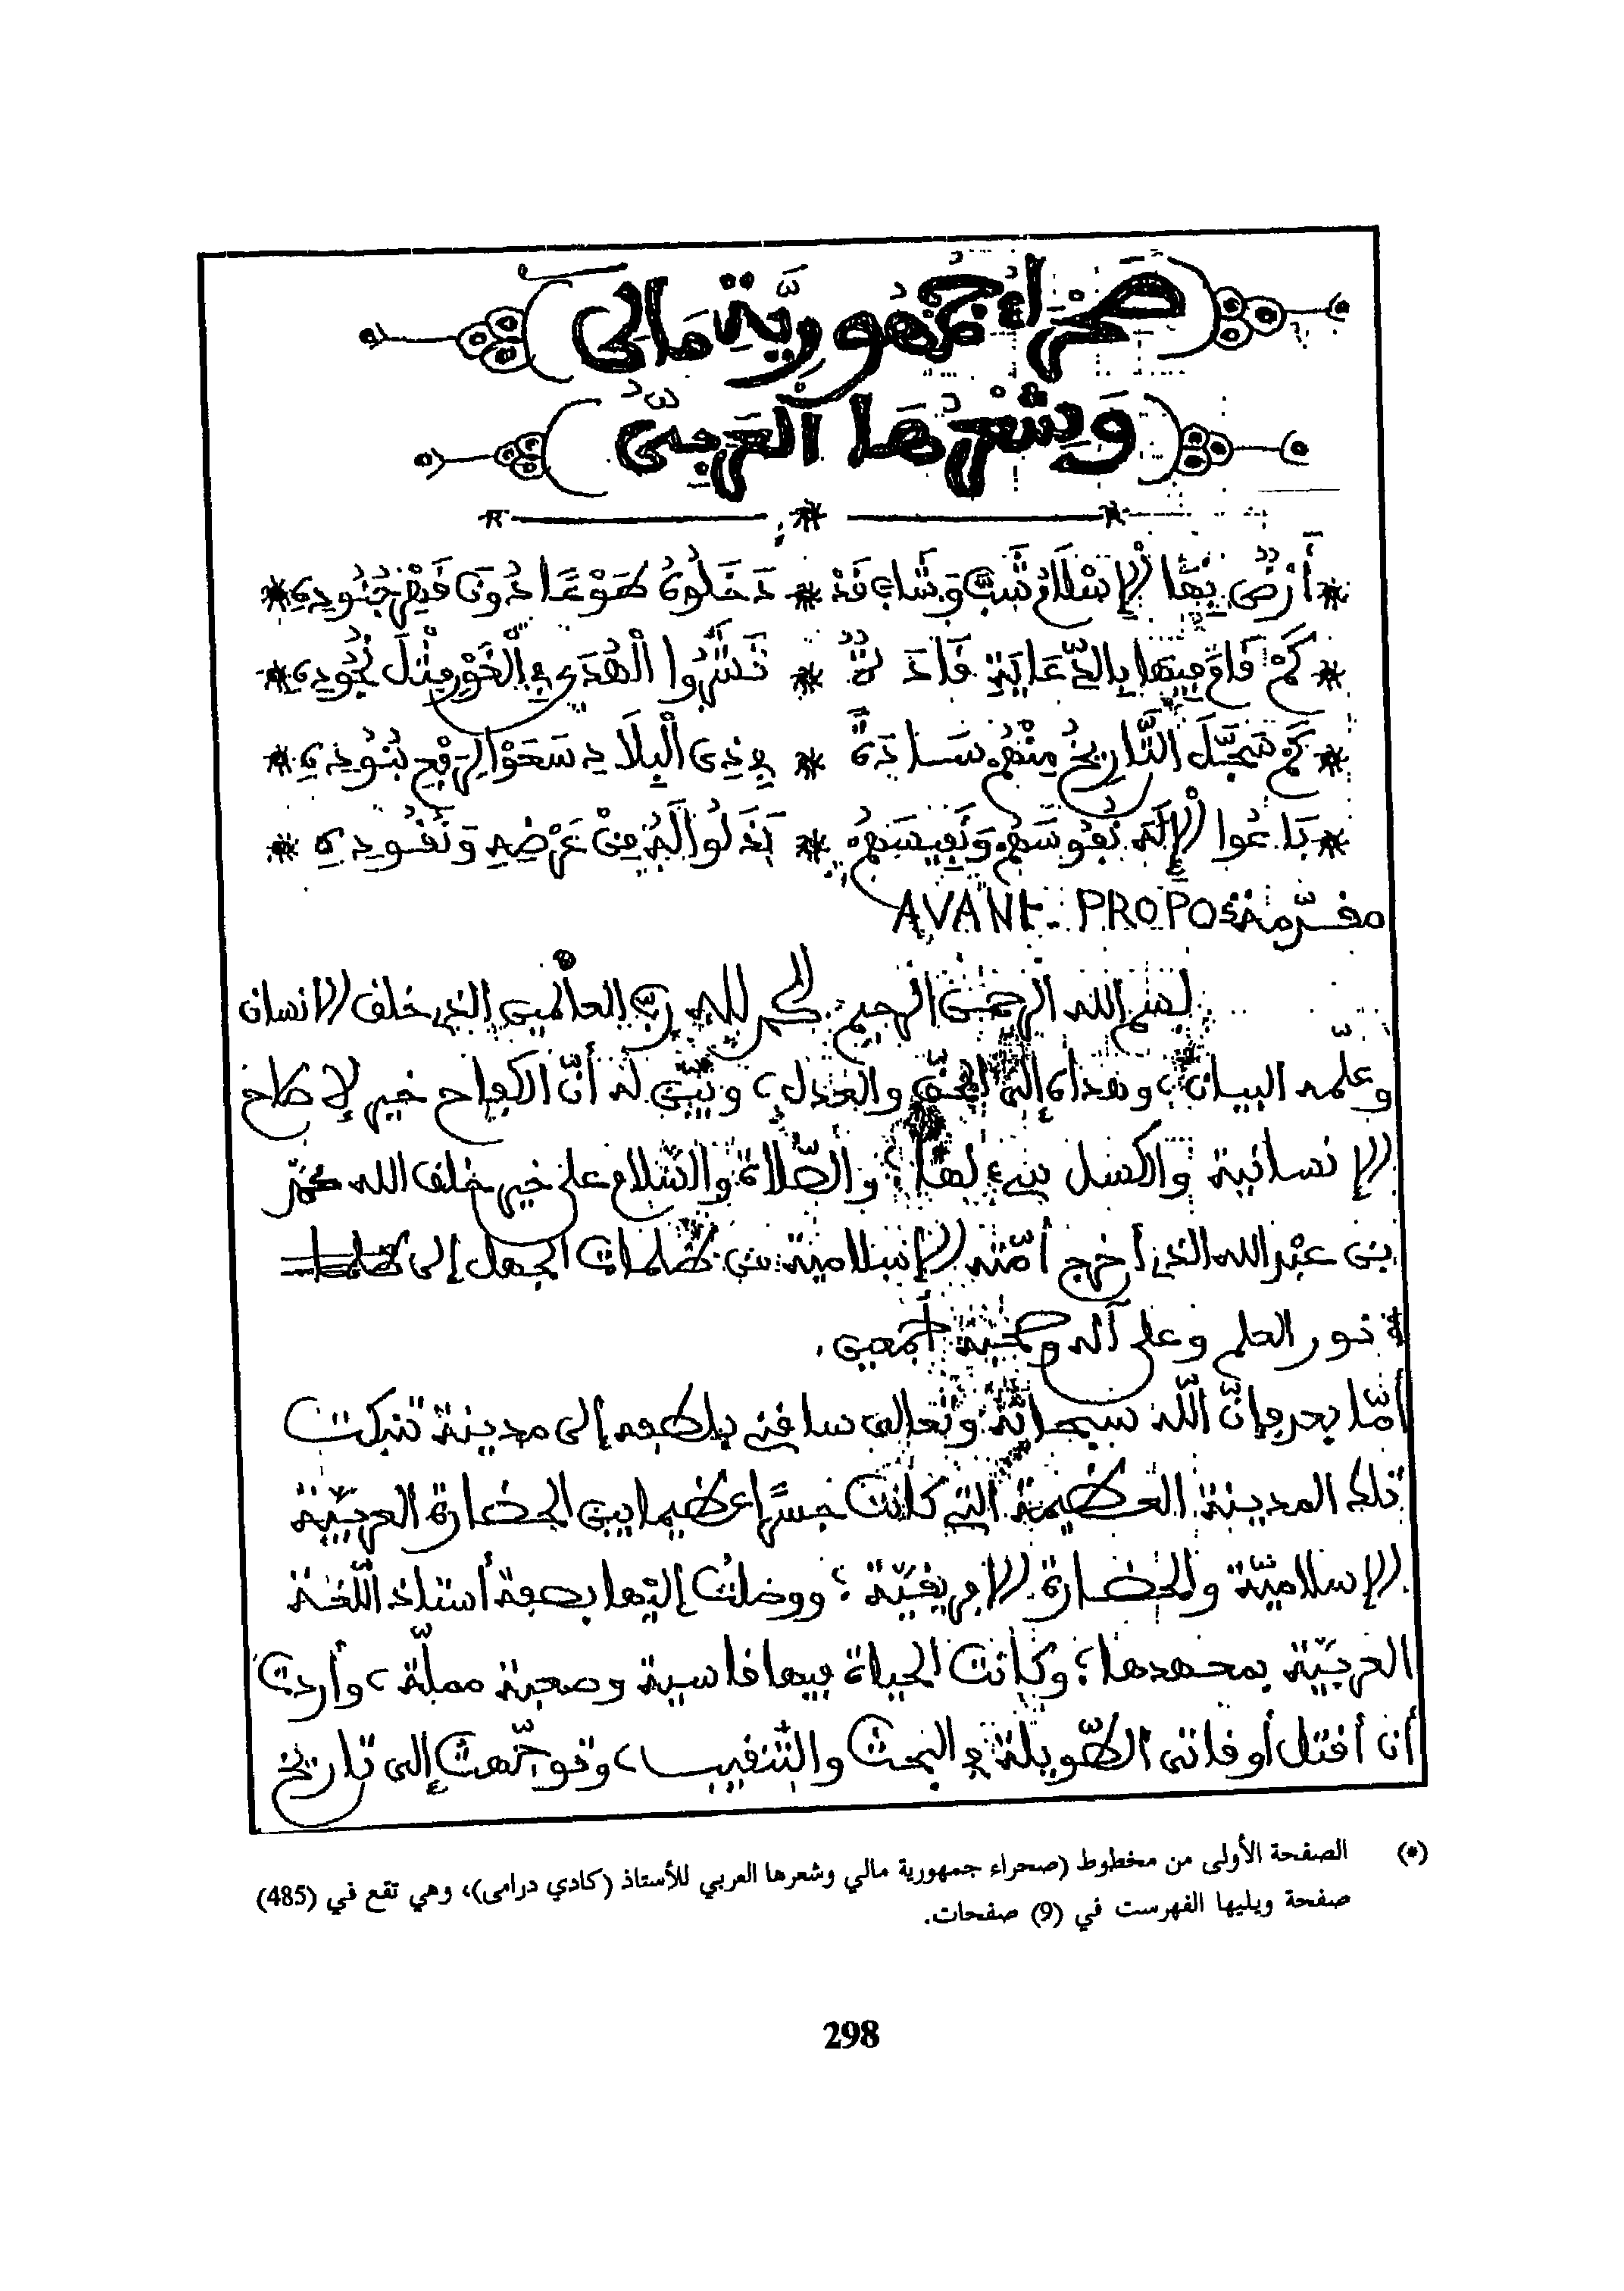 صحراء جمهورية مالي
وشعرها العربي
* أَرْضٌ بِهَا الْإِسْلَامُ شَبَّ وَشَابَ قَدْ * دَخَلُوهُ طَوْعًا دُونَ قَيْدِ جُنُودِي *
* كَمْ قَامَ فِيهَا بِالدِّعَايَةِ قَادَةٌ * نَشَرُوا الْهُدَى فِي الْغَوْرِ مِثْلَ نُجُودِي *
* كَمْ سَجَّلَ التَّارِيخُ مِنْهُمْ سَادَةً * فِي ذِي الْبِلَادِ سَعَوْا لِرَفْعِ بُنُودِي *
* بَاعُوا الْإِلَهَ نُفُوسَهُمْ وَنَفِيسَهُمْ * بَذَلُوا لَهُ مِنْ عَرْضِهِ وَنُقُودِي *
مقدّمة AVANT-PROPOS
بسم الله الرحمن الرحيم. الحمد لله ربّ العالمين الذي خلق الانسان
وعلّمه البيان، وهداه إلى الحقّ والعدل، وبيّن له أنّ الكفاح خير لإصلاح
الإنسانية والكسل لها؛ والصّلاة والسّلام على خير خلق الله محمّد
بن عبد الله الذي أخرج أمّته الإسلامية من ظلمات الجهل إلى
نور العلم وعلى آله وصحبه أجمعين.
أمّا بعد فإنّ اللّه سبحانه وتعالى ساقني بلطفه إلى مدينة تنبكت
تلك المدينة العظيمة التي كانت جسرًا عظيما بين الحضارة العربيّة
الإسلاميّة والحضارة الإفريقيّة؛ ووصلت إليها بصفة أستاذ اللّغة
العربيّة بمعهدها؛ وكانت الحياة فيها قاسية وصعبة مملّة، وأردت
أن أقتل أوقاتي الطّويلة في البحث والتّنقيب، وتوجّهت إلى تاريخ
(*) الصفحة الأولى من مخطوط (صحراء جمهورية مالي وشعرها العربي للأستاذ (كادي درامى)، وهي تقع في (485)
صفحة ويليها الفهرست في (9) صفحات.
298